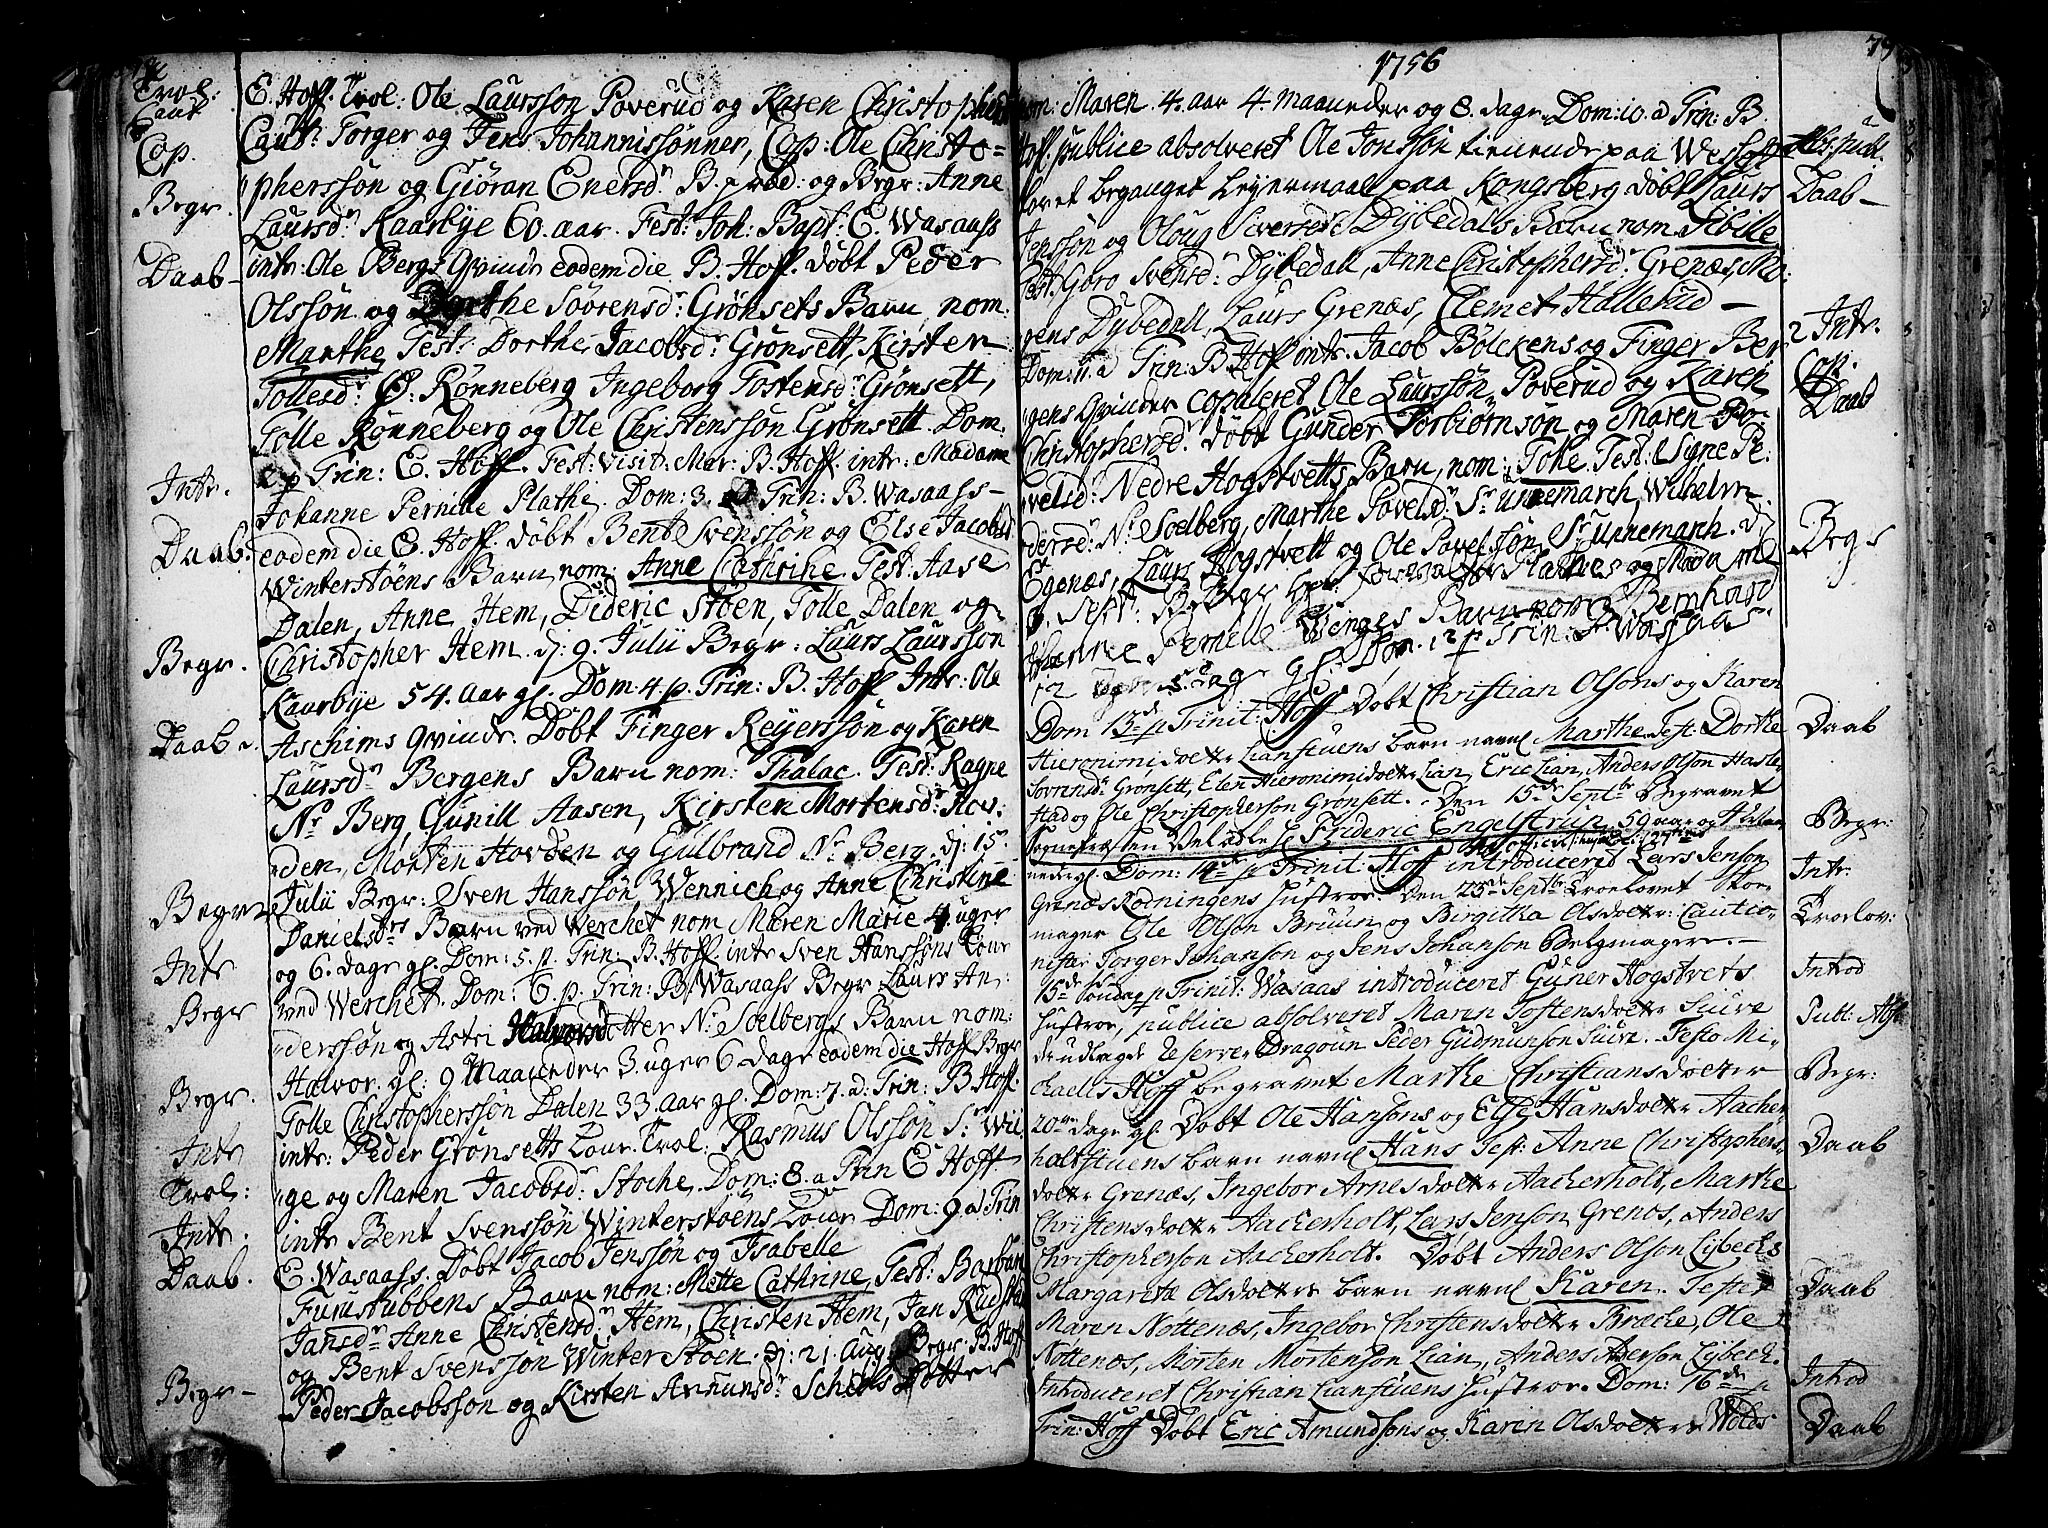 1756
79
Trol:
Caut
Cop.
Begr.
Daab
Intr.
Daab.
Begr.
Daab
Begr
Intr
Begr
Begr.
Intr
Trol:
Intr.
Daab.
Begr
E. Hoff. Trol: Ole Laursson Poverud og Karen Christophersd
Caut: Torger og Jens Johannissønner, Cop: Ole Christo-
phersson og Giøran Enersd: B. præd: og Begr: Anne
Laursd: Kaarbye 60. aar. Fest: Joh: Bapt: E. Wasaass
intr: Ole Bergs Qvinde eodem die B. Hoff. døbt Peder
Olssøn og Dorthe Søørensd: Grønsets Barn, nom:
Marthe, Test: Dorthe Jacobsd: Grønsett, Kirsten
Tollesd: Ø. Rønneberg Ingeborg Tostensd: Grønsett,
Tolle Rønneberg og Ole Christenssøn Grønsett. Dom:
2. p Trin: E. Hoff. Fest: Visit: Mar: B. Hoff. intr: Madame
Johanne Pernille Plathe. Dom: 3. Trin: B. Wasaass
eodem die E. Hoff. døbt Bent Svenssøn og Else Jacobsd
Winterstøens Barn, nom: Anne Cathrine Test: Aase
Dalen, Anne Hem, Dideric Støen, Tolle Dalen og
Christopher Hem. d: 9. Julii Begr: Laurs Laursson
Kaarbye 54. aar gl. Dom: 4 p. Trin: B. Hoff Intr: Ole
Aschims Qvinde. Døbt Finger Reyerssøn og Karen
Laursd: Bergens Barn nom: Thalac. Test: Ragne
Nr Berg, Gunill Aasen, Kirsten Mortensd: Hov:
den, Morten Hovden og Gulbrand Nr Berg. d: 15.
Julii Begr: Sven Hanssøn Wennich og Anne Christine
Danielsd Barn ved Werchet nom Maren Marie 4 uger
og 6. dage gl. Dom: 5. p. Trin: B. Hoff. intr Sven Hanssøns Cour
ved Werchet. Dom: 6. p. Trin: B. Wasaass Begr Laurs An:
derssøn og Astri Halvorsdotter Nr Soelbergs Barn nom:
Halvor. gl: 9 Maaneder 3 uger 6 dage eodem die Hoff Begr
Tolle Christopherssøn Dalen 33. aar gl. Dom: 7. a: Trin: B. Hoff.
intr: Peder Grønsetts Cour. Trol: Rasmus Olssøn Sr Wil
ge og Maren Jacobsd: Stoche. Dom: 8. a Trin E Hoff
intr Bent Svenssøn Winterstøens Cour Dom: 9. a Trin
E. Wasaass. Døbt Jacob Jenssøn og Isabelle
Furustubbens Barn nom: Mette Cathrine, Test: Barbara
Jansd: Anne Christensd: Hem, Christen Hem, Jan
og Bent Svenssøn Winterstøen. d: 21. Aug Begr. B. Hoff
Peder Jacobsson og Kirsten Amunsd: Dotter
nom: Maren 4. aar 4. Maaneder og 8. dage. Dom: 10. a Trin: B.
Hof. publice absolveret Ole Jonssøn tienende paa
foret beganget Leyermaal paa Kongsberg døbt Laurs
Jenssøn og Oloug Siversd: Dybedals Barn nom Sibille
Test: Goro Svensd: Dybedall, Anne Christophersd: Grenæs, Mo:
gens Dybedall, Laurs Grenæs, Clemet Hallerud —
Dom: 11. a Trin: B. Hoff intr: Jacob Bølckens og Finger Ber
gens Qvinder copuleret Ole Laursson Poverud og Karen
Christophersd: døbt Gunder Torbiørnsøn og Maren Po-
velsd: Nedre Hogstvetts Barn, nom: Toke, Test: Signe Pe:
dersd: Nr Soelberg, Marthe Povelsd: Sr Unnemarch, Wilhelm
Egenæs, Laurs Hogstvett og Ole Povelssøn Sr Unnemarch. d:
Sept: B. Begr Plathes og Madame
Pernille Winges Barn nom Bernhard
12 dage gl. Dom. 12 p Trin: B. Wasaas
Dom 13de p Trinit: Hoff Døbt Christian Olsøns og Karen
Hieronimidotter Lianstuens barn navnl Marthe Test: Dorthe
Sovrensd: Grønsett, Elen Hieronimidotter Lian, Eric Lian, Anders Olson Hasle
stad og Ole Christopherson Grønsett. Den 15de Septbr Begravet
Sognepræsten Vel ædle H. Frideric Engelstrup 59 aar og 4 Maa
neder gl. Dom: 14de p Trinit: Hoff introduceret Lars Jenson
Grenæs Rodningens Hustroe. Den 23de Septbr Troelovet Skoe-
mager Ole Olson Bruun og Birgitha Olsdotter: Cautio-
nister Jorger Johanson og Jens Johanson Belgmagere.—
15de Søndag p Trinit: Wasaas introduceret Guner Hogstvets
Hustroe, publice absolveret Maren Tostensdotter Suive
de udlagde Reserve Dragoun Peder Gudmunson Suive. Festo Mi-
chaelis Hoff begravet Marthe Christiansdotter
20 dage gl Døbt Ole Hansøns og Else Hansdotter Aacher
holtstuens barn navnl Hans Test: Anne Christophers-
dotter Grenæs, Ingebor Arnesdotter Aacherholt, Marthe
Christensdotter Aackerholt, Lars Jenson Grenæs, Anders
Christopherson Aackerholt. Døbt Anders Olson Lybecks
Margareta Olsdotters barn navnl Karen. Testes
Maren Nottenæs, Ingebor Christensdotter Bræche, Ole
Nottenæs, Morten Mortenson Lian, Anders Aderson Lybeck.
Introduceret Christian Lianstuens Hustroe. Dom: 16de p
Trin: Hoff Døbt Eric Amundsøns og Karin Olsdotters Wolds
Daab
2 Intr.
Cop.
Daab
Begr
Daab
Begr:
Intr:
Troelov:
Introd
Publ: Abs
Begr:
Daab
Daab
Introd
Daab